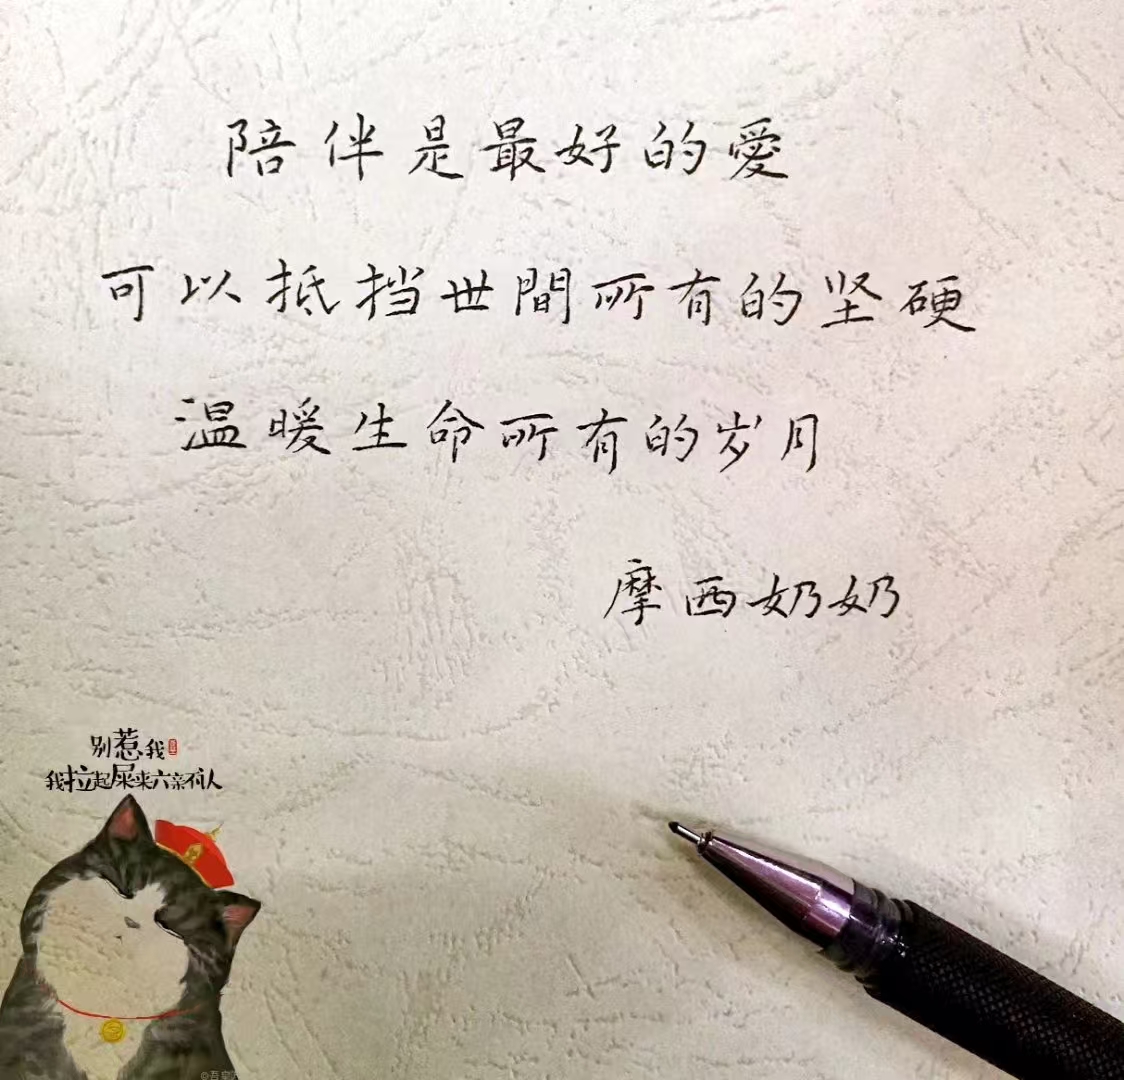 陪伴是最好的愛
可以抵挡世間所有的坚硬
温暖生命所有的岁月
摩西奶奶
别惹我
我拉起屎来六亲不认人